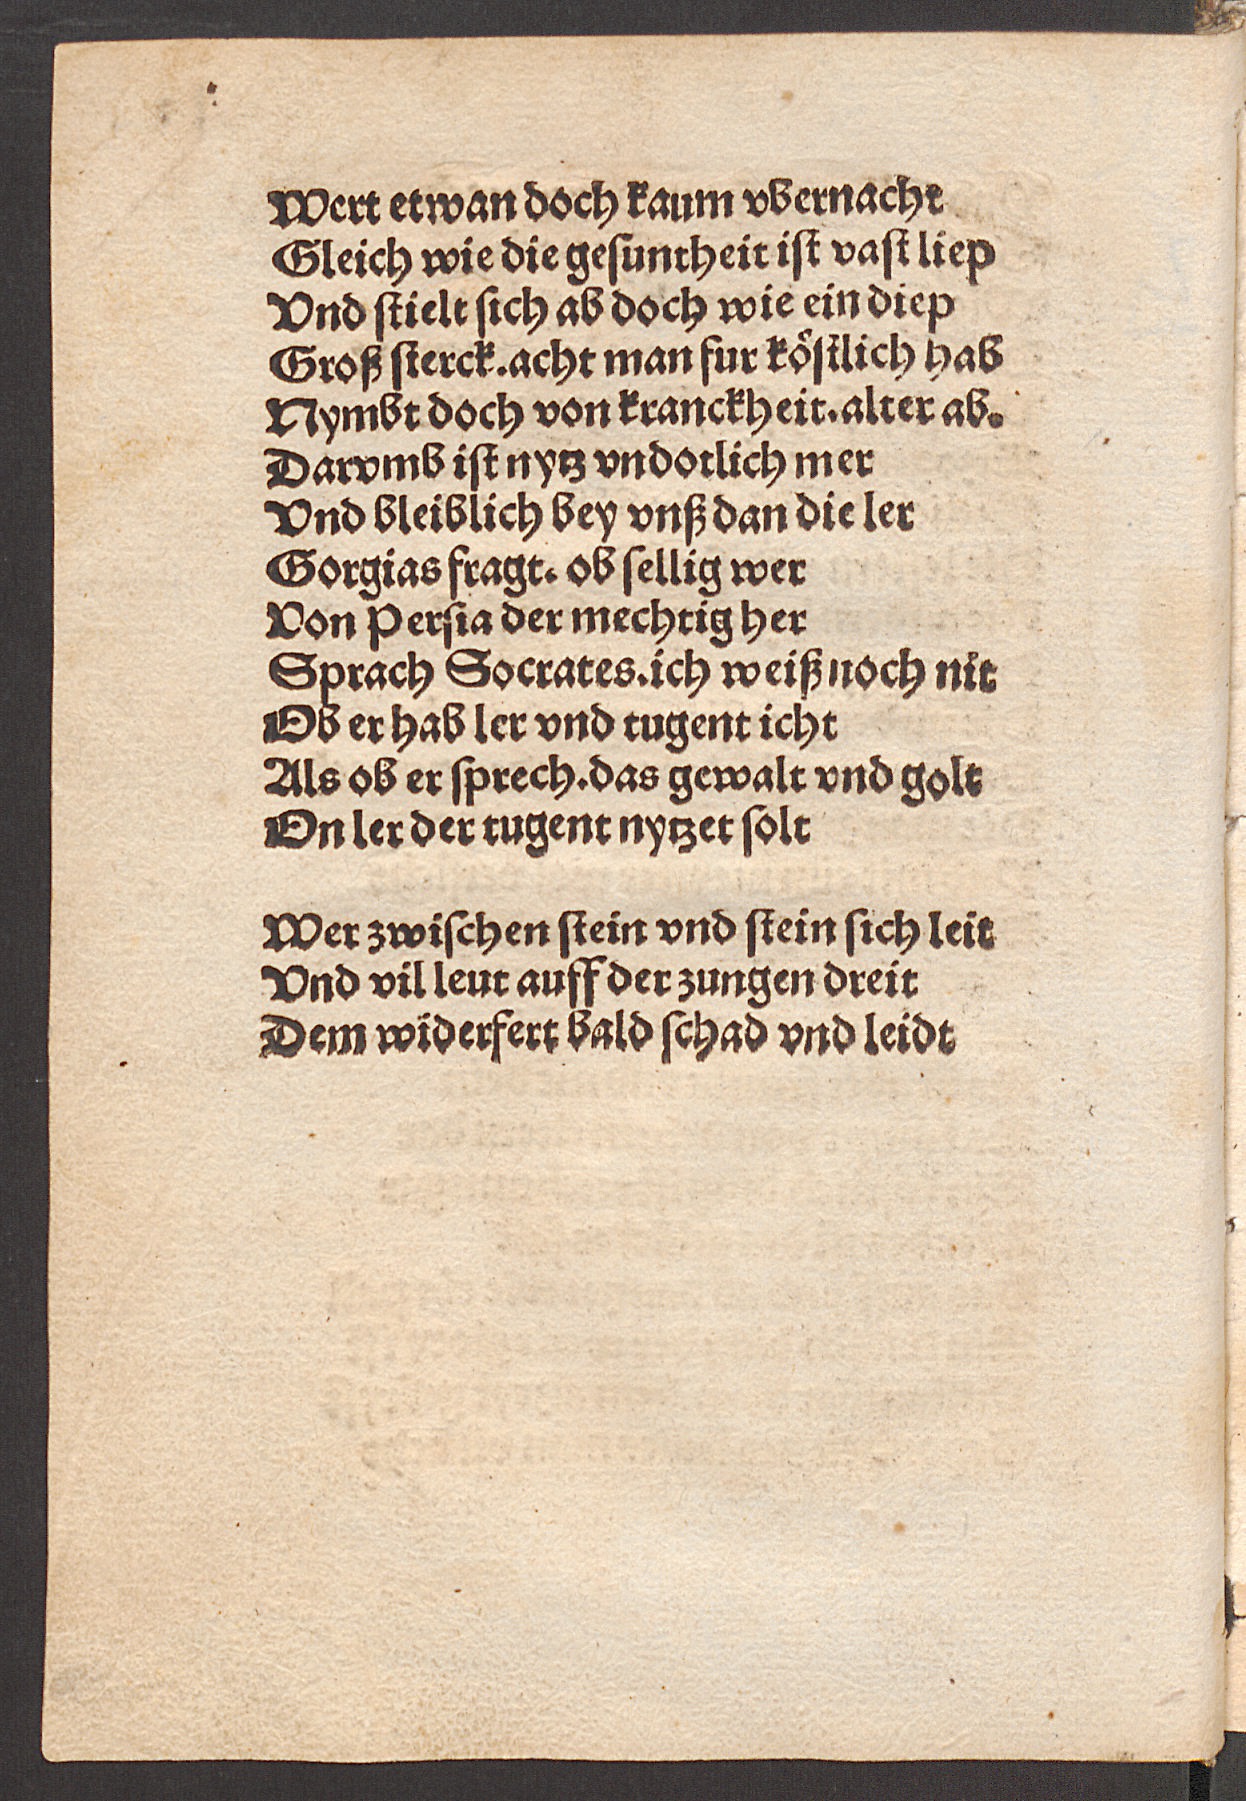 Wert etwan doch kaum vbernacht
Gleich wie die geſuntheit iſt vaſt liep
Vnd ſtielt ſich ab doch wie ein diep
Groß ſterck.acht man fur köſtlich hab
Nymbt doch von kranckheit.alter ab.
Darvmb iſt nytz vndotlich mer
Vnd bleiblich bey vnß dan die ler
Gorgias fragt. ob ſellig wer
Von Perſia der mechtig her
Sprach Socrates.ich weiß noch nit
Ob er hab ler vnd tugent icht
Als ob er ſprech.das gewalt vnd golt
On ler der tugent nytzet ſolt
Wer zwiſchen ſtein vnd ſtein ſich leit
Vnd vil leut auff der zungen dreit
Dem widerfert bald ſchad vnd leidt